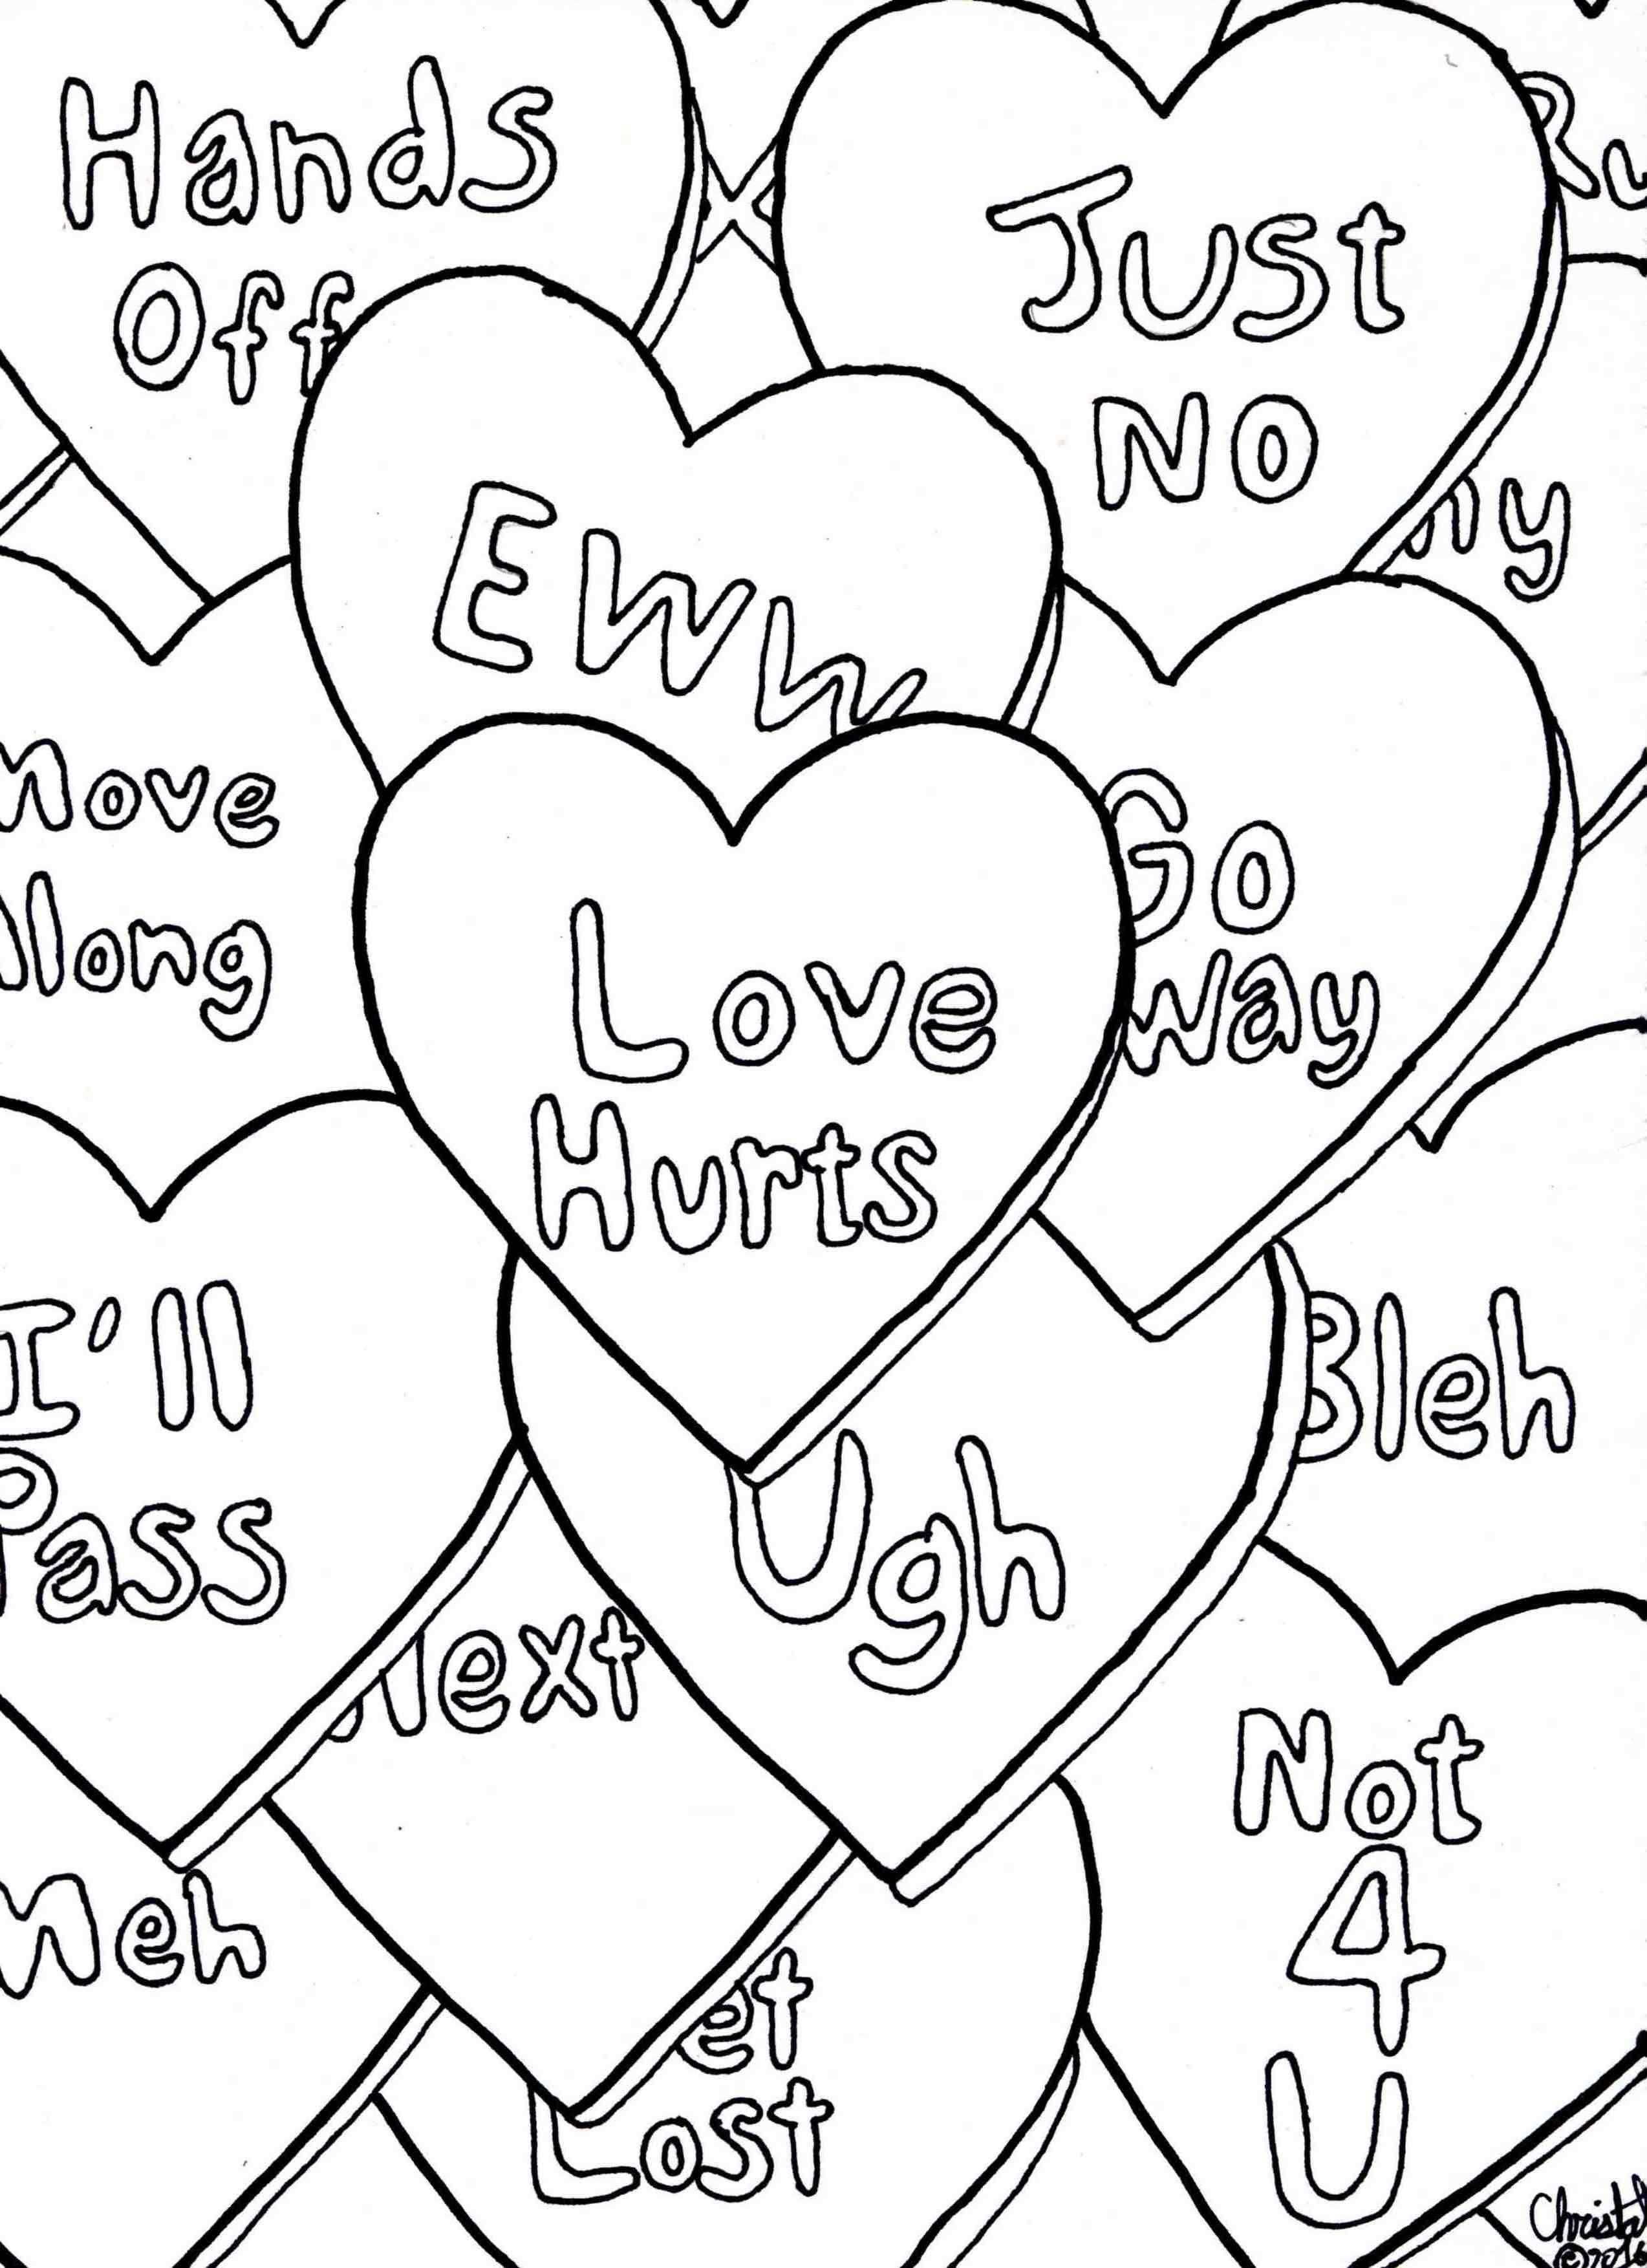 Hands
Off
Just
No
Eww
Move
Along
Go
Way
Love
Hurts
I'll
Pass
Bleh
Ugh
Next
Not
4
U
Meh
et
Lost